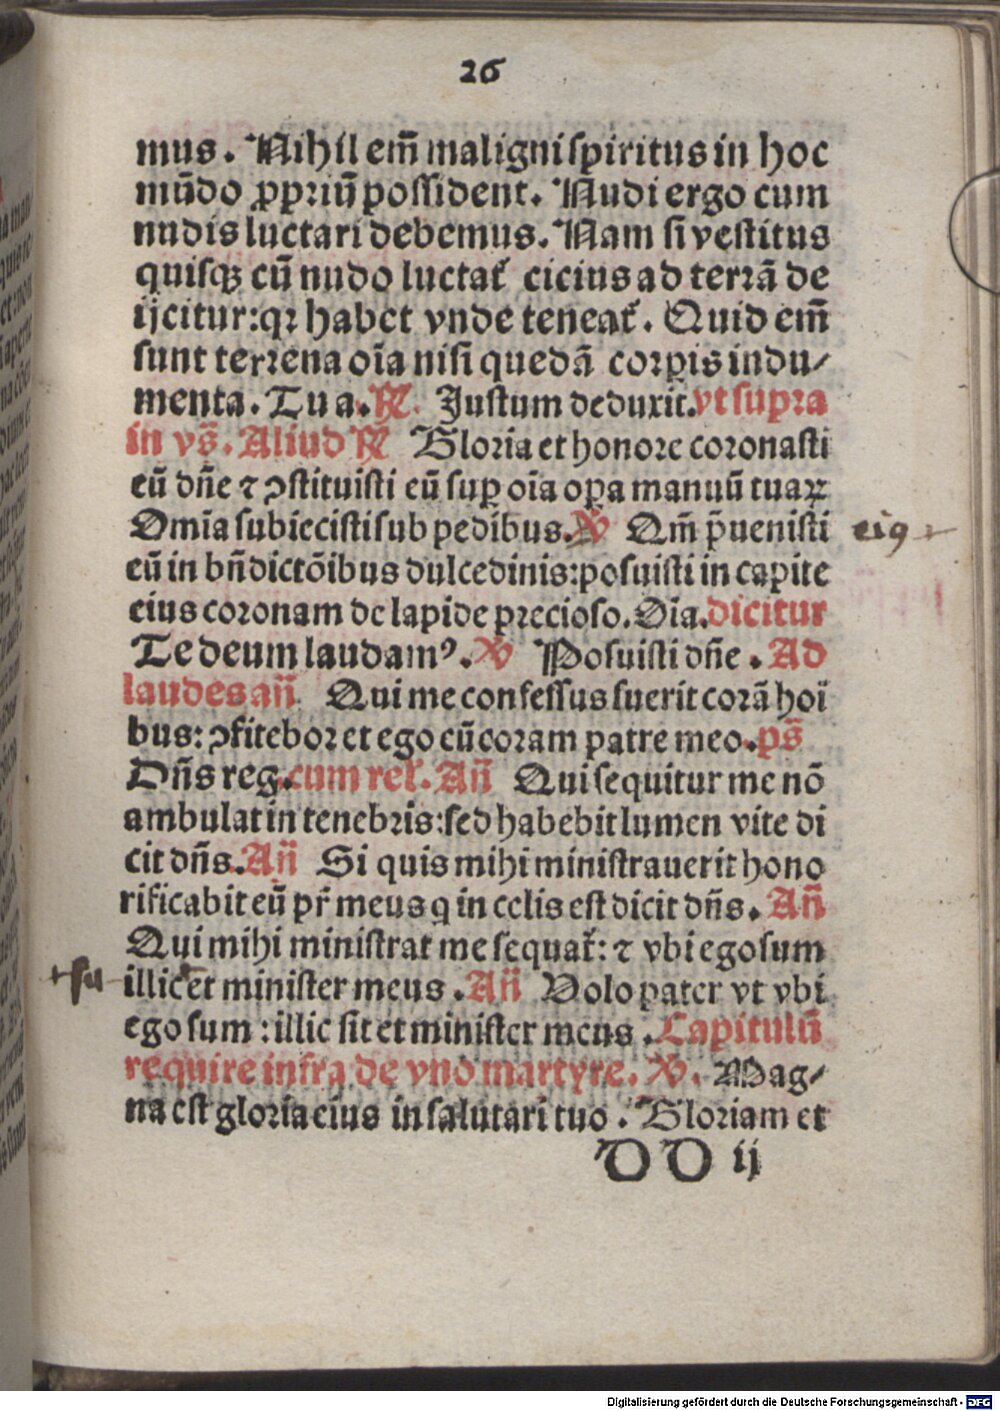 26
mus. Nihil em̄ maligni spiritus in hoc
mūdo ꝓpriū possident. Nudi ergo cum
nudis luctari debemus. Nam si vestitus
quisqꝫ cū nudo luctat᷑ cicius ad terrā de
ijcitur: qꝛ habet vnde teneat᷑. Quid em̄
sunt terrena oīa nisi quedā corꝑis indu⸗
menta. Tu a. ℟. Justum deduxit. vt supra
in vs̄. Aliud ℟ Gloria et honore coronasti
eū dn̄e ⁊ ꝯstituisti eū suꝑ oīa oꝑa manuū tuaꝝ
Omīa subiecisti sub pedibus. ℣ Qm̄ p̄uenisti
eiꝰ +
eū in bn̄dictōibus dulcedinis: posuisti in capite
eius coronam de lapide precioso. Oīa. dicitur
Te deum laudamꝰ. ℣ Posuisti dn̄e. Ad
laudes an̄ Qui me confessus fuerit corā hoī
bus: ꝯfitebor et ego cū coram patre meo. ps̄
Dn̄s reg. cum rel᷑. An̄ Qui sequitur me nō
ambulat in tenebris: sed habebit lumen vite di
cit dn̄s. An̄ Si quis mihi ministrauerit hono
rificabit eū pr̄ meus q in celis est dicit dn̄s. An̄
Qui mihi ministrat me sequat᷑: ⁊ vbi ego sum
+ su
illic et minister meus. An̄ Volo pater vt vbi
ego sum: illic sit et minister meus. Capitulū
require infra de vno martyre. ℣. Mag⸗
na est gloria eius in salutari tuo. Gloriam et
DD ij
Digitalisierung gefördert durch die Deutsche Forschungsgemeinschaft - DFG